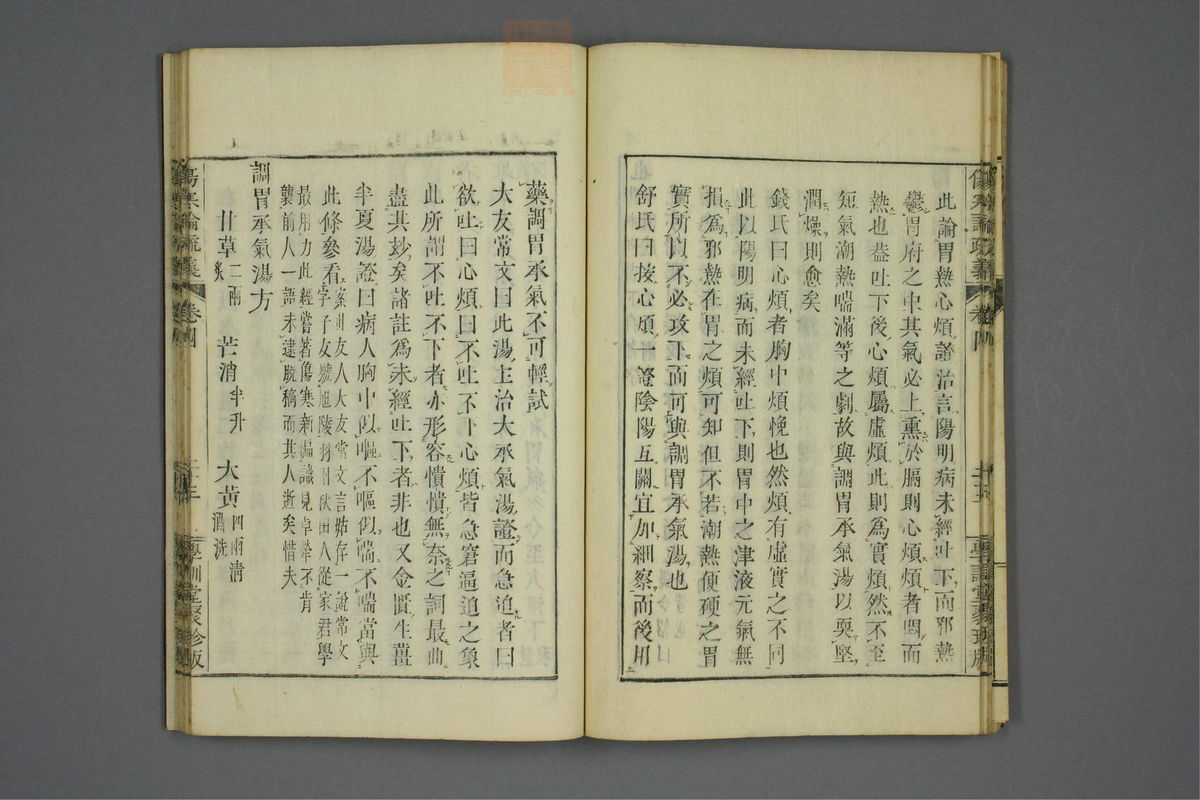 此論胃熱心煩證治言陽明病未經吐下而邪熱
鬱胃府之中其氣必上熏於膈則心煩煩者悶而
熱也蓋吐下後心煩屬虛煩此則為實煩然不至
短氣潮熱喘滿等之劇故與調胃承氣湯以耎堅
潤燥則愈矣
錢氏曰心煩者胸中煩悗也然煩有虛實之不同
此以陽明病而未經吐下則胃中之津液元氣無
損為邪熱在胃之煩可知但不若潮熱便硬之胃
實所以不必攻下而可與調胃承氣湯也
舒氏曰按心煩一證陰陽互關宜加細察而後用
藥調胃承氣不可輕試
大友常文曰此湯主治大承氣湯證而急迫者曰
欲吐曰心煩曰不吐不下心煩皆急窘逼迫之象
此所謂不吐不下者亦形容憒憒無奈之詞最曲
盡其妙矣諸註為未經吐下者非也又金匱生薑
半夏湯證曰病人胸中似嘔不嘔似喘不喘當與
此條參看
案此友人大友常文言姑存一說常文
字子友號旭陵羽州秋田人從家君學
最用力此經嘗著傷寒新編識見卓犖不肯
襲前人一語未逮脫稿而其人逝矣惜夫
調胃承氣湯方
甘草二兩炙 芒消半升 大黃四兩清酒洗
傷寒論疏義 卷四
學訓堂聚珍版